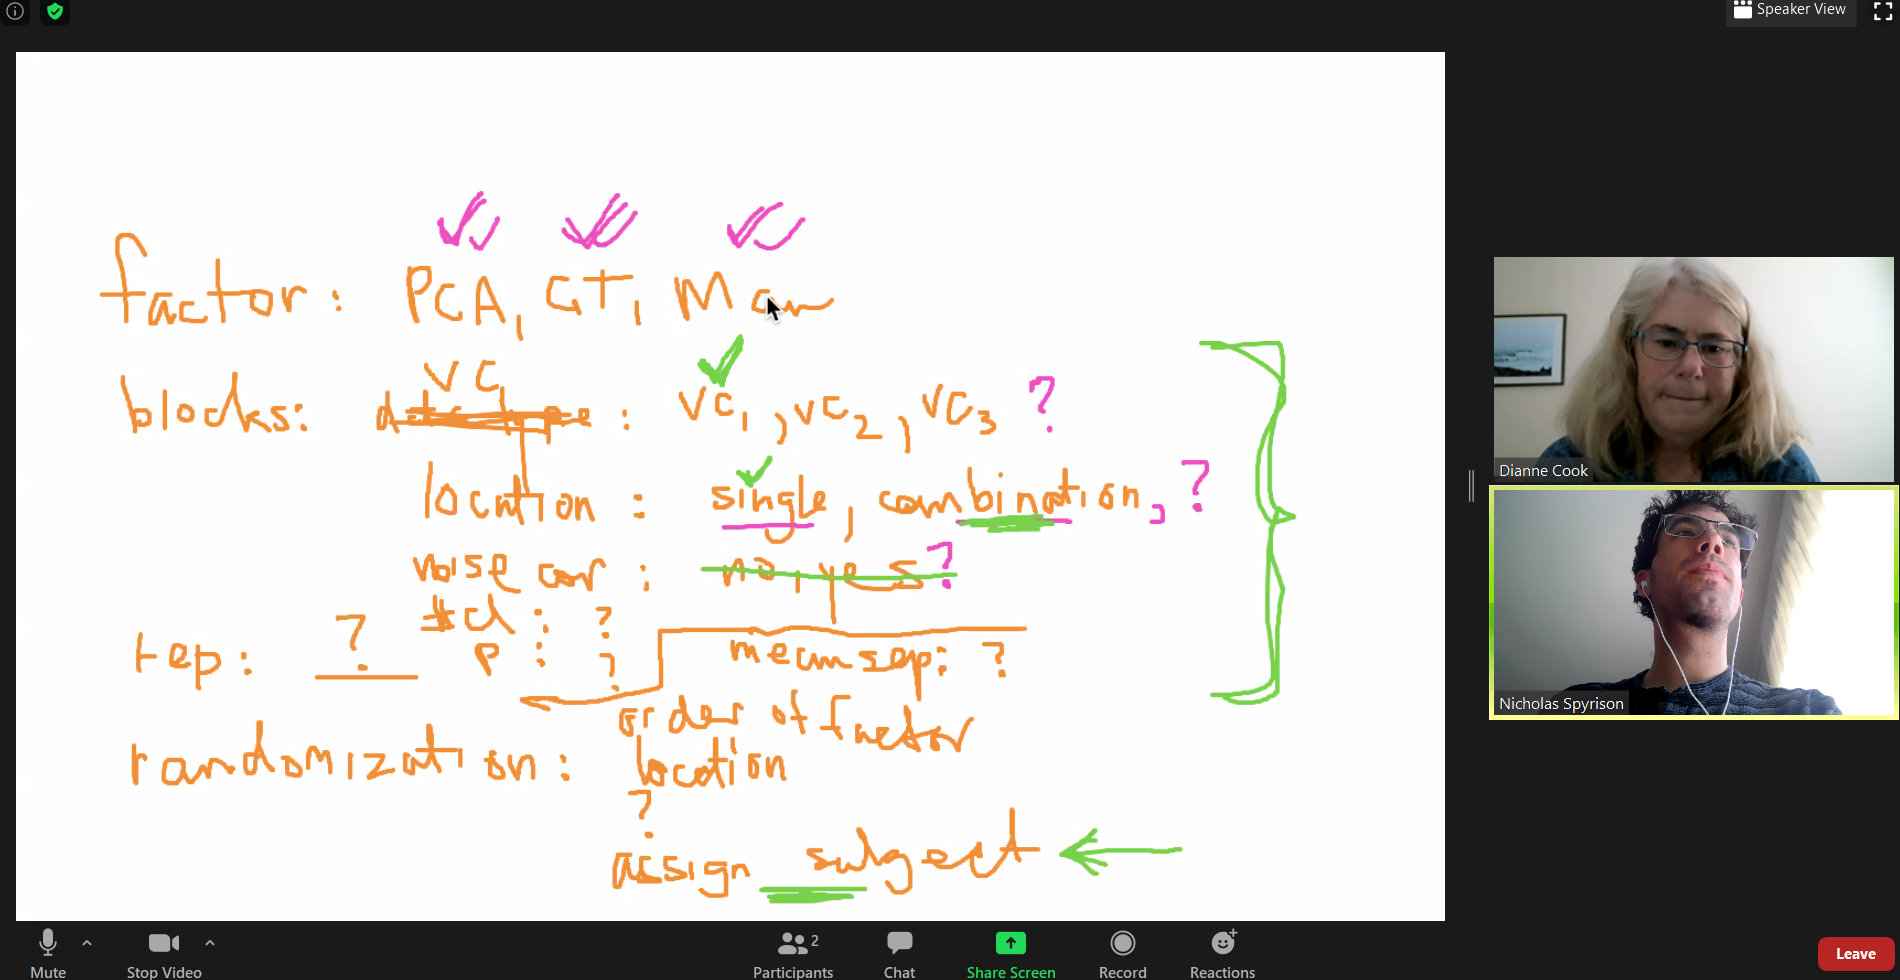 Speaker View
factor: PCA, GT, Man
VC
blocks: : VC1, VC2, VC3 ?
location : single, combination, ?
noise cor : no, yes ?
#cl : ?
rep: ? p : ? mean sep: ?
order of factor
randomization: location
?
assign subject
Dianne Cook
Nicholas Spyrison
Mute
Stop Video
Participants 2
Chat
Share Screen
Record
Reactions
Leave